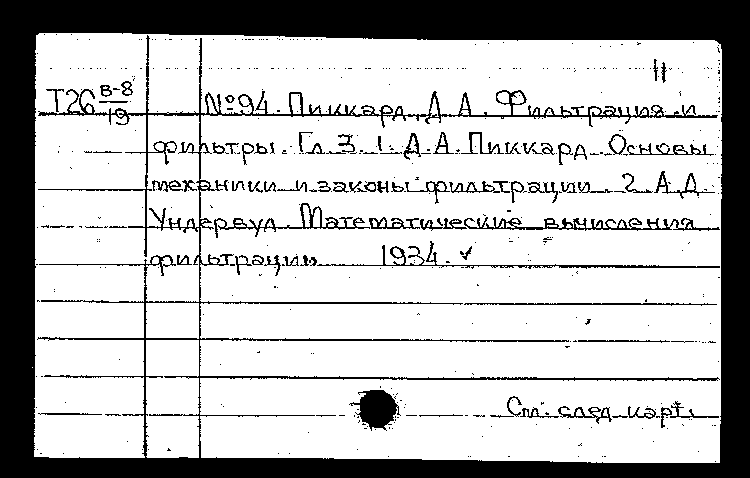 11
Т26 В-8/19 №94. Пиккард, Д. А. Фильтрация и
фильтры. Гл. 3. 1. Д. А. Пиккард. Основы
механики и законы фильтрации. 2. А. Д.
Ундервуд. Математические вычисления
фильтрации. 1934. ✓
См. след. карт.